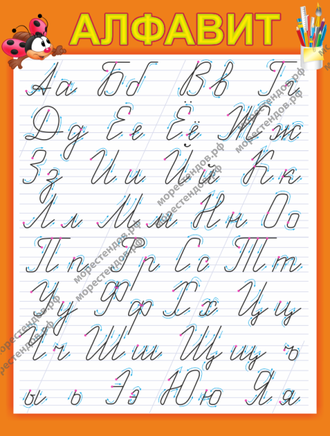 АЛФАВИТ
Аа Бб Вв Гг
Дд Ее Ёё Жж
Зз Ии Йй Кк
Лл Мм Нн Оо
Пп Рр Сс Тт
Уу Фф Хх Цц
Чч Шш Щщ ъ
ы ь Ээ Юю Яя
морестендов.рф
морестендов.рф
морестендов.рф
морестендов.рф
морестендов.рф
морестендов.рф
морестендов.рф
морестендов.рф